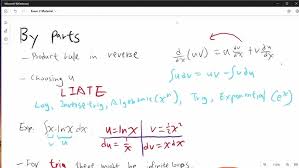 By parts
- Product rule in reverse
d/dx (uv) = u dv/dx + v du/dx
∫udv = uv - ∫vdu
- Choosing u
LIATE
Log, Inverse trig, Algebraic (xⁿ), Trig, Exponential (eˣ)
Exp. ∫x lnx dx
u = lnx
v = ½x²
du = 1/x
dv = x dx
- For trig there might be infinite loops